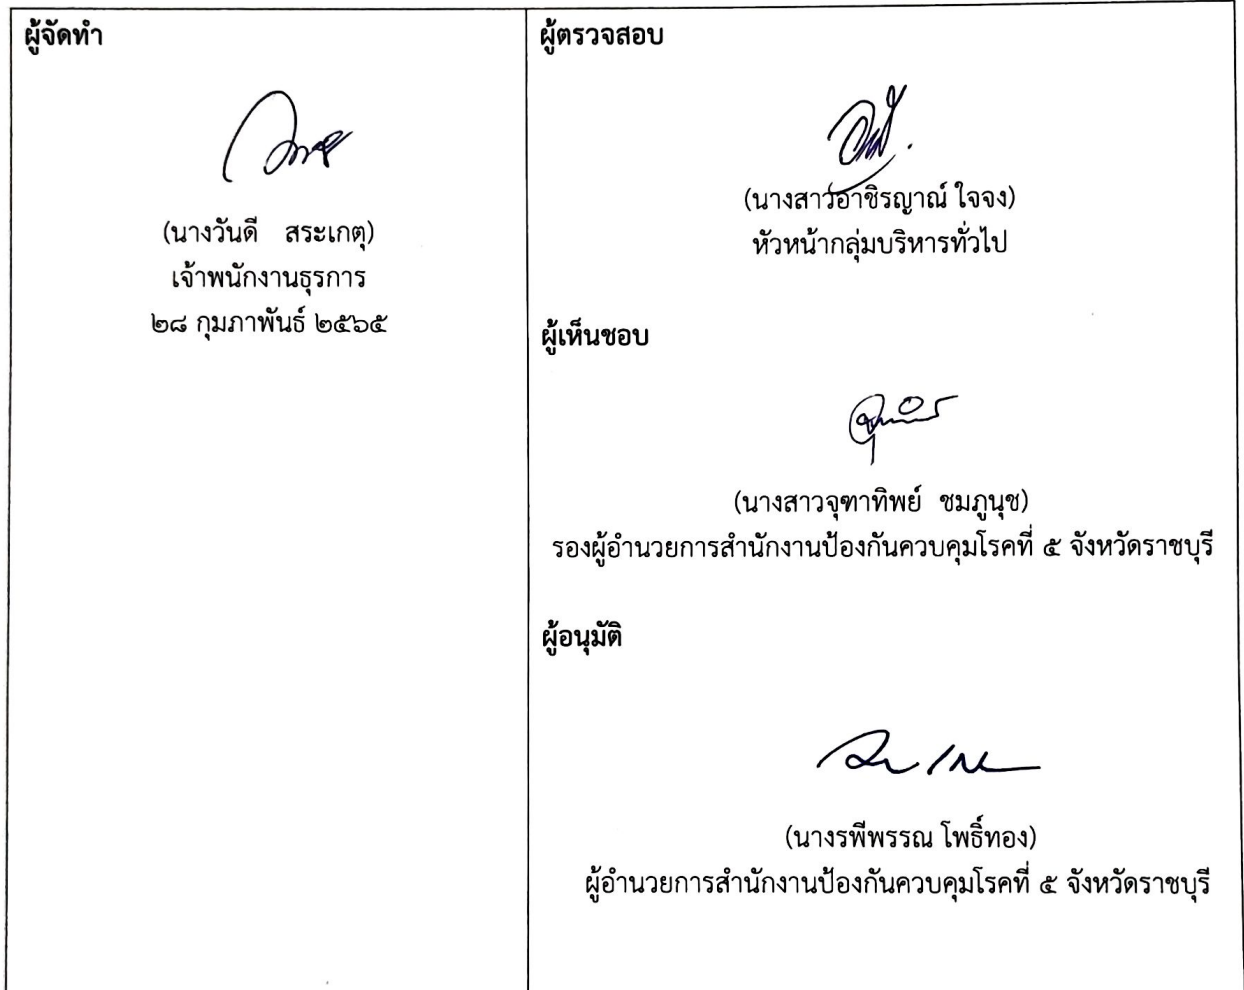 ผู้จัดทำ
(นางวันดี สระเกตุ)
เจ้าพนักงานธุรการ
๒๘ กุมภาพันธ์ ๒๕๖๕
ผู้ตรวจสอบ
(นางสาวอาชิรญาณ์ ใจจง)
หัวหน้ากลุ่มบริหารทั่วไป
ผู้เห็นชอบ
(นางสาวจุฑาทิพย์ ชมภูนุช)
รองผู้อำนวยการสำนักงานป้องกันควบคุมโรคที่ ๕ จังหวัดราชบุรี
ผู้อนุมัติ
(นางรพีพรรณ โพธิ์ทอง)
ผู้อำนวยการสำนักงานป้องกันควบคุมโรคที่ ๕ จังหวัดราชบุรี